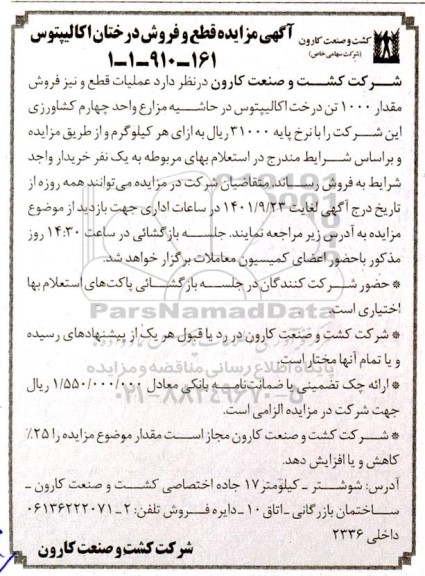 آگهی مزایده قطع و فروش درختان اکالیپتوس
۱-۱-۹۱۰-۱۶۱
کشت و صنعت کارون
(شرکت سهامی خاص)
شرکت کشت و صنعت کارون در نظر دارد عملیات قطع و نیز فروش
مقدار ۱۰۰۰ تن درخت اکالیپتوس در حاشیه مزارع واحد چهارم کشاورزی
این شرکت را با نرخ پایه ۳۱۰۰۰ ریال به ازای هر کیلوگرم و از طریق مزایده
و براساس شرایط مندرج در استعلام بهای مربوطه به یک نفر خریدار واجد
شرایط به فروش رساند. متقاضیان شرکت در مزایده می‌توانند همه روزه از
تاریخ درج آگهی لغایت ۱۴۰۱/۹/۲۳ در ساعات اداری جهت بازدید از موضوع
مزایده به آدرس زیر مراجعه نمایند. جلسه بازگشائی در ساعت ۱۴:۳۰ روز
مذکور باحضور اعضای کمیسیون معاملات برگزار خواهد شد.
* حضور شرکت کنندگان در جلسه بازگشائی پاکت‌های استعلام بها
اختیاری است.
ParsNamadData
* شرکت کشت و صنعت کارون در رد یا قبول هر یک از پیشنهادهای رسیده
و یا تمام آنها مختار است.
پایگاه اطلاع رسانی مناقصه و مزایده
* ارائه چک تضمینی یا ضمانت‌نامه بانکی معادل ۱/۵۵۰/۰۰۰/۰۰۰ ریال
۰۲۱-۸۸۳۴۹۶۷۰-۵
جهت شرکت در مزایده الزامی است.
* شرکت کشت و صنعت کارون مجاز است مقدار موضوع مزایده را ۲۵٪
کاهش و یا افزایش دهد.
آدرس: شوشتر - کیلومتر ۱۷ جاده اختصاصی کشت و صنعت کارون -
ساختمان بازرگانی -اتاق ۱۰ -دایره فروش تلفن: ۲ -۰۶۱۳۶۲۲۲۰۷۱
داخلی ۲۳۳۶
شرکت کشت و صنعت کارون